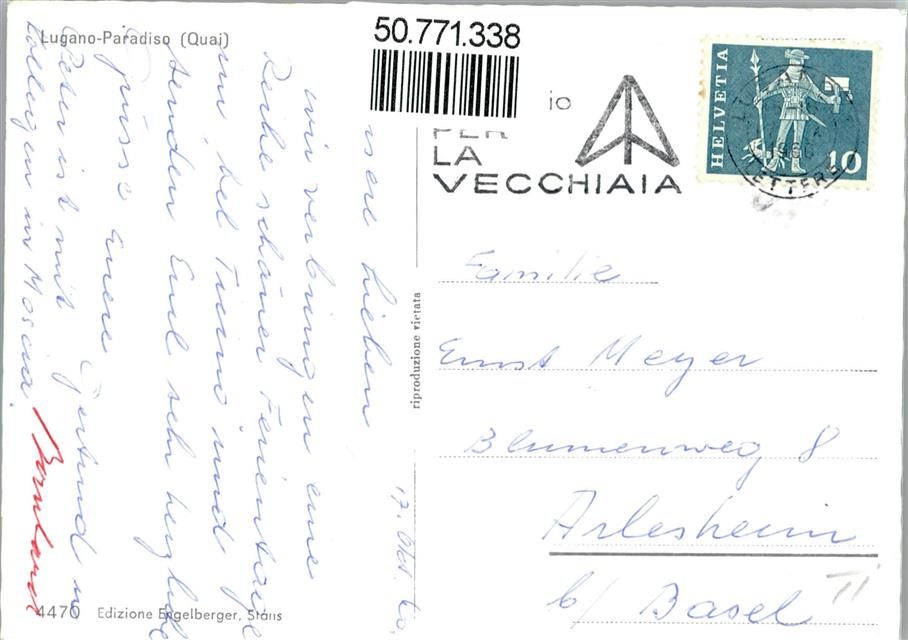 Lugano-Paradiso (Quai)
50.771.338
io
PER
LA
VECCHIAIA
HELVETIA
10
1966
LETTERE
17. Okt.
lieben
wir verbringen eine
Reihe schöner Ferientage
im bel Ticino und
senden Euch sehr herzliche
Grüsse Euere
Peter ist mit
Kollegen in Moscia.
riproduzione vietata
Familie
Ernst Meyer
Blumenweg 8
Arlesheim
b/ Basel
4470 Edizione Engelberger, Stans